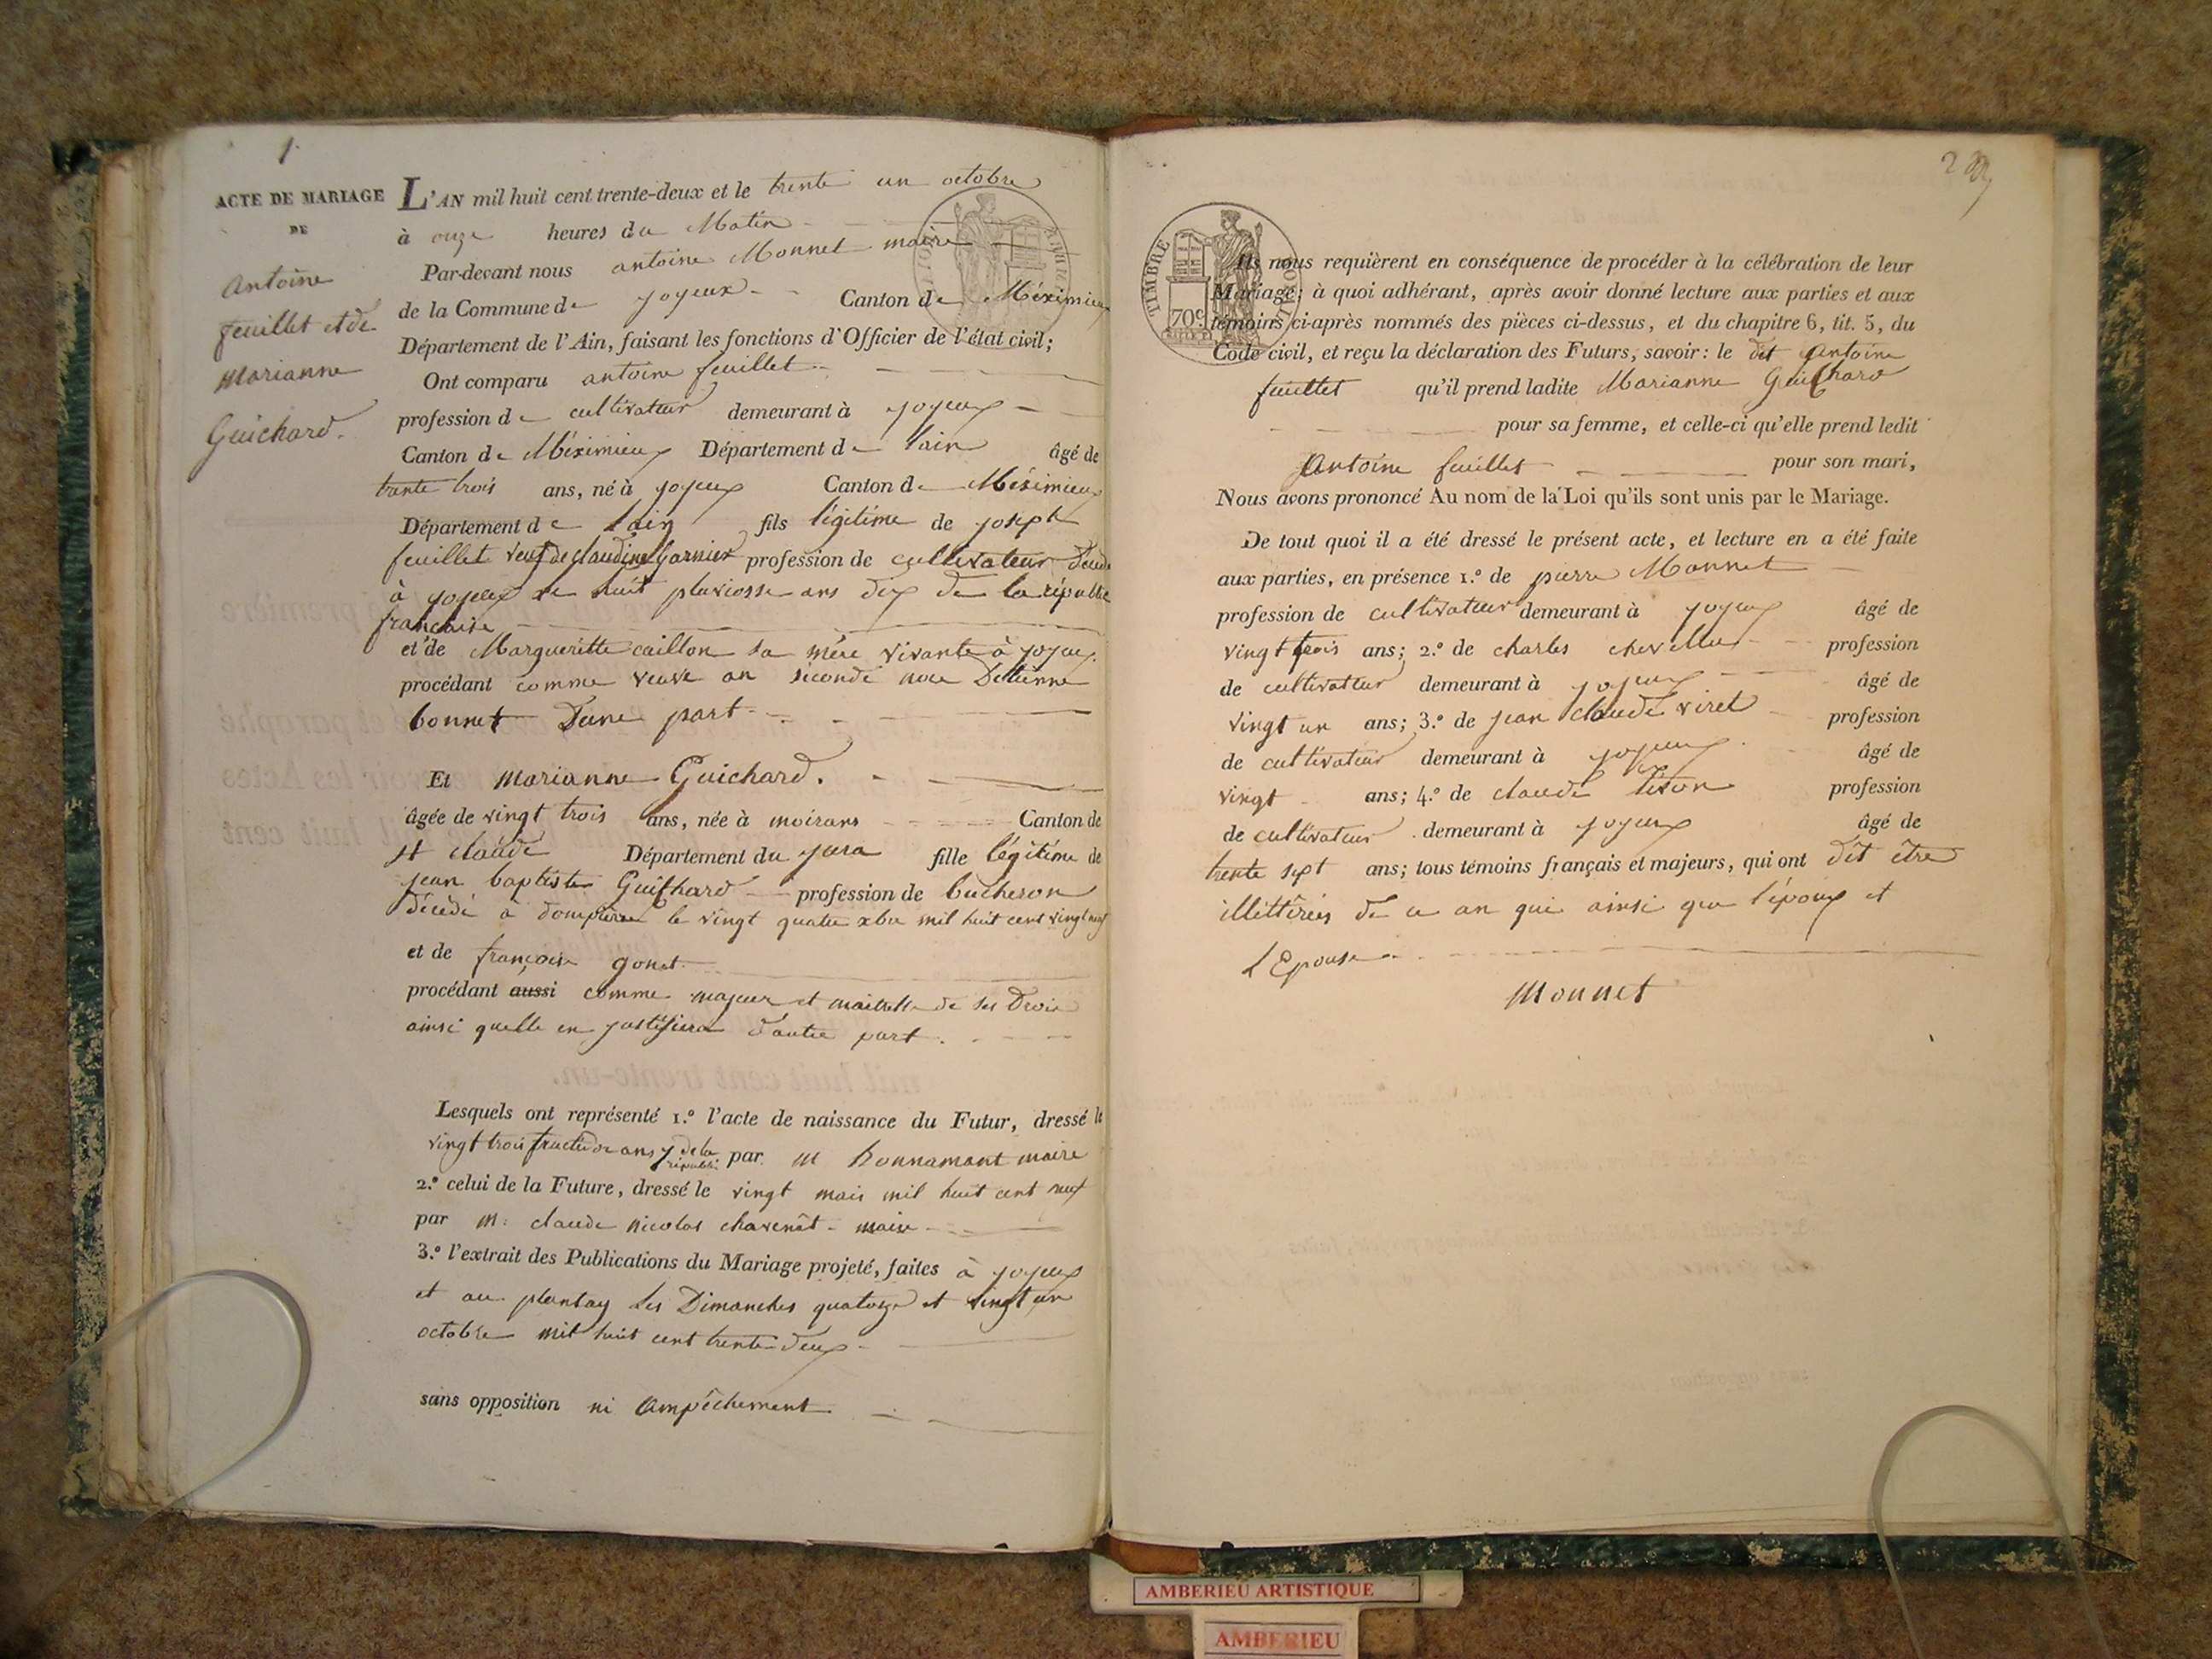 1.
ACTE DE MARIAGE
DE
Antoine
feuillet et de
Marianne
Guichard.
L'AN mil huit cent trente-deux et le trente un octobre
à onze heures du Matin
Par-devant nous antoine Monnet maire
de la Commune de joyeux Canton de Méximieux
Département de l'Ain, faisant les fonctions d'Officier de l'état civil;
Ont comparu antoine feuillet
profession de cultivateur demeurant à joyeux
Canton de Méximieux Département de lain âgé de
trente trois ans, né à joyeux Canton de Méximieux
Département de lain fils légitime de joseph
feuillet veuf de claudine Garnier profession de cultivateur
à joyeux le huit pluviosse ans dix de la républic
francaise
et de Margueritte caillon sa mére vivante à joyeux
procédant comme veuve an seconde noce Detienne
bonnet Dune part
Et Marianne Guichard.
âgée de vingt trois ans, née à moirans Canton de
st claude Département du jura fille légitime de
jean baptiste Guichard profession de bucheron
décédé à dompierre le vingt quatre xbre mil huit cent vingt neuf
et de françoise gonet
procédant aussi comme majeur et maitresse de ses Drois
ainsi quelle en justifiera d'autre part.
Lesquels ont représenté 1.º l'acte de naissance du Futur, dressé le
vingt trois fructidor ans 7 de la républi: par M Bonnamant maire
2.º celui de la Future, dressé le vingt mais mil huit cent neuf
par M: claude nicolas chavenêt maire
3.º l'extrait des Publications du Mariage projeté, faites à joyeux
et au plantay les Dimanches quatorze et vingt un
octobre mil huit cent trente deux
sans opposition ni ampêchement
TIMBRE
ROYAL
70c
Ils nous requièrent en conséquence de procéder à la célébration de leur
Mariage; à quoi adhérant, après avoir donné lecture aux parties et aux
témoins ci-après nommés des pièces ci-dessus, et du chapitre 6, tit. 5, du
Code civil, et reçu la déclaration des Futurs, savoir: le dit Antoine
feuillet qu'il prend ladite Marianne Guichard
pour sa femme, et celle-ci qu'elle prend ledit
Antoine feuillet pour son mari,
Nous avons prononcé Au nom de la Loi qu'ils sont unis par le Mariage.
De tout quoi il a été dressé le présent acte, et lecture en a été faite
aux parties, en présence 1.º de pierre Monnet
profession de cultivateur demeurant à joyeux âgé de
vingt trois ans; 2.º de charles chevellu profession
de cultivateur demeurant à joyeux âgé de
vingt un ans; 3.º de jean claude viret profession
de cultivateur demeurant à joyeux âgé de
vingt ans; 4.º de claude tison profession
de cultivateur demeurant à joyeux âgé de
trente sept ans; tous témoins français et majeurs, qui ont dit être
illittérées de ce an qui ainsi que l'époux et
L'Epouse
Monnet
AMBERIEU ARTISTIQUE
AMBERIEU